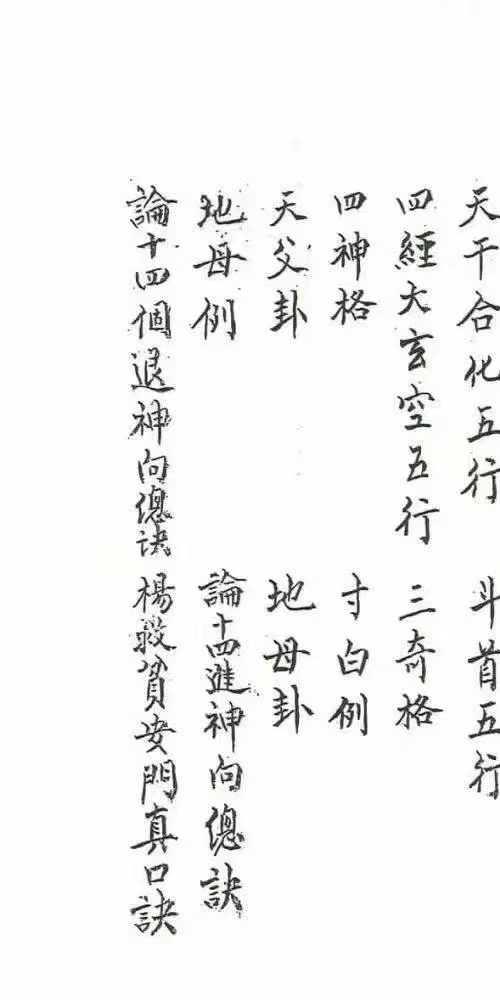 天干合化五行 斗首五行
四經大玄空五行 三奇格
四神格 寸白例
天父卦 地母卦
地母例 論十四進神向總訣
論十四個退神向總訣 楊救貧安門真口訣